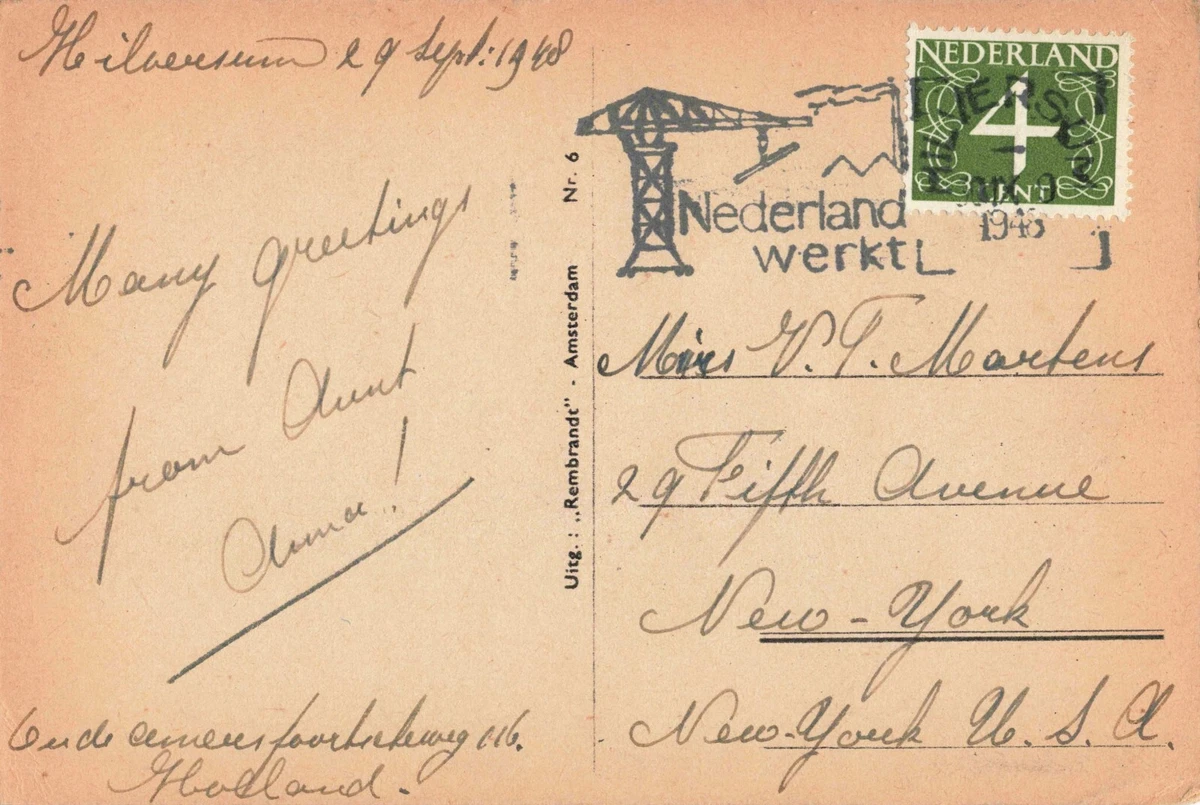 Hilversum 29 Sept: 1948
Many greetings
from Aunt
Anna!
Oude amersfoortscheweg 116.
Holland.
Uitg.: „Rembrandt” - Amsterdam Nr. 6
Nederland
werkt
NEDERLAND
4
CENT
HILVERSUM
1948
Miss V. T. Martens
29 Fifth Avenue
New-York
New-York U. S. A.